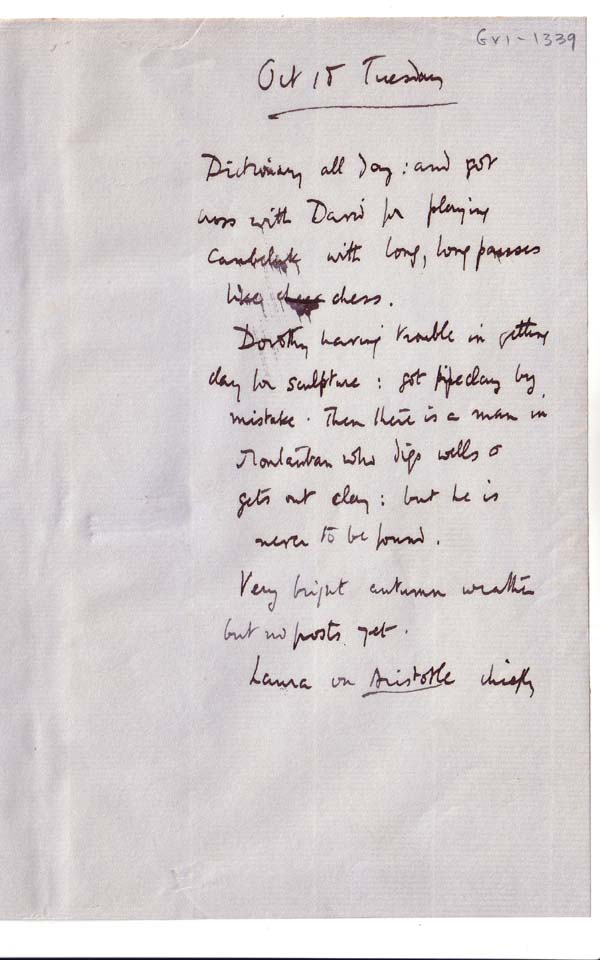 Gv1-1339
Oct 18 Tuesday
Dictionary all day: and got
cross with David for playing
with long, long pauses
like chess.
Dorothy having trouble in getting
clay for sculpture: got pipeclay by
mistake. Then there is a man in
Montauban who digs wells &
gets out clay: but he is
never to be found.
Very bright autumn weather
but no frosts yet.
Laura on Aristotle chiefly